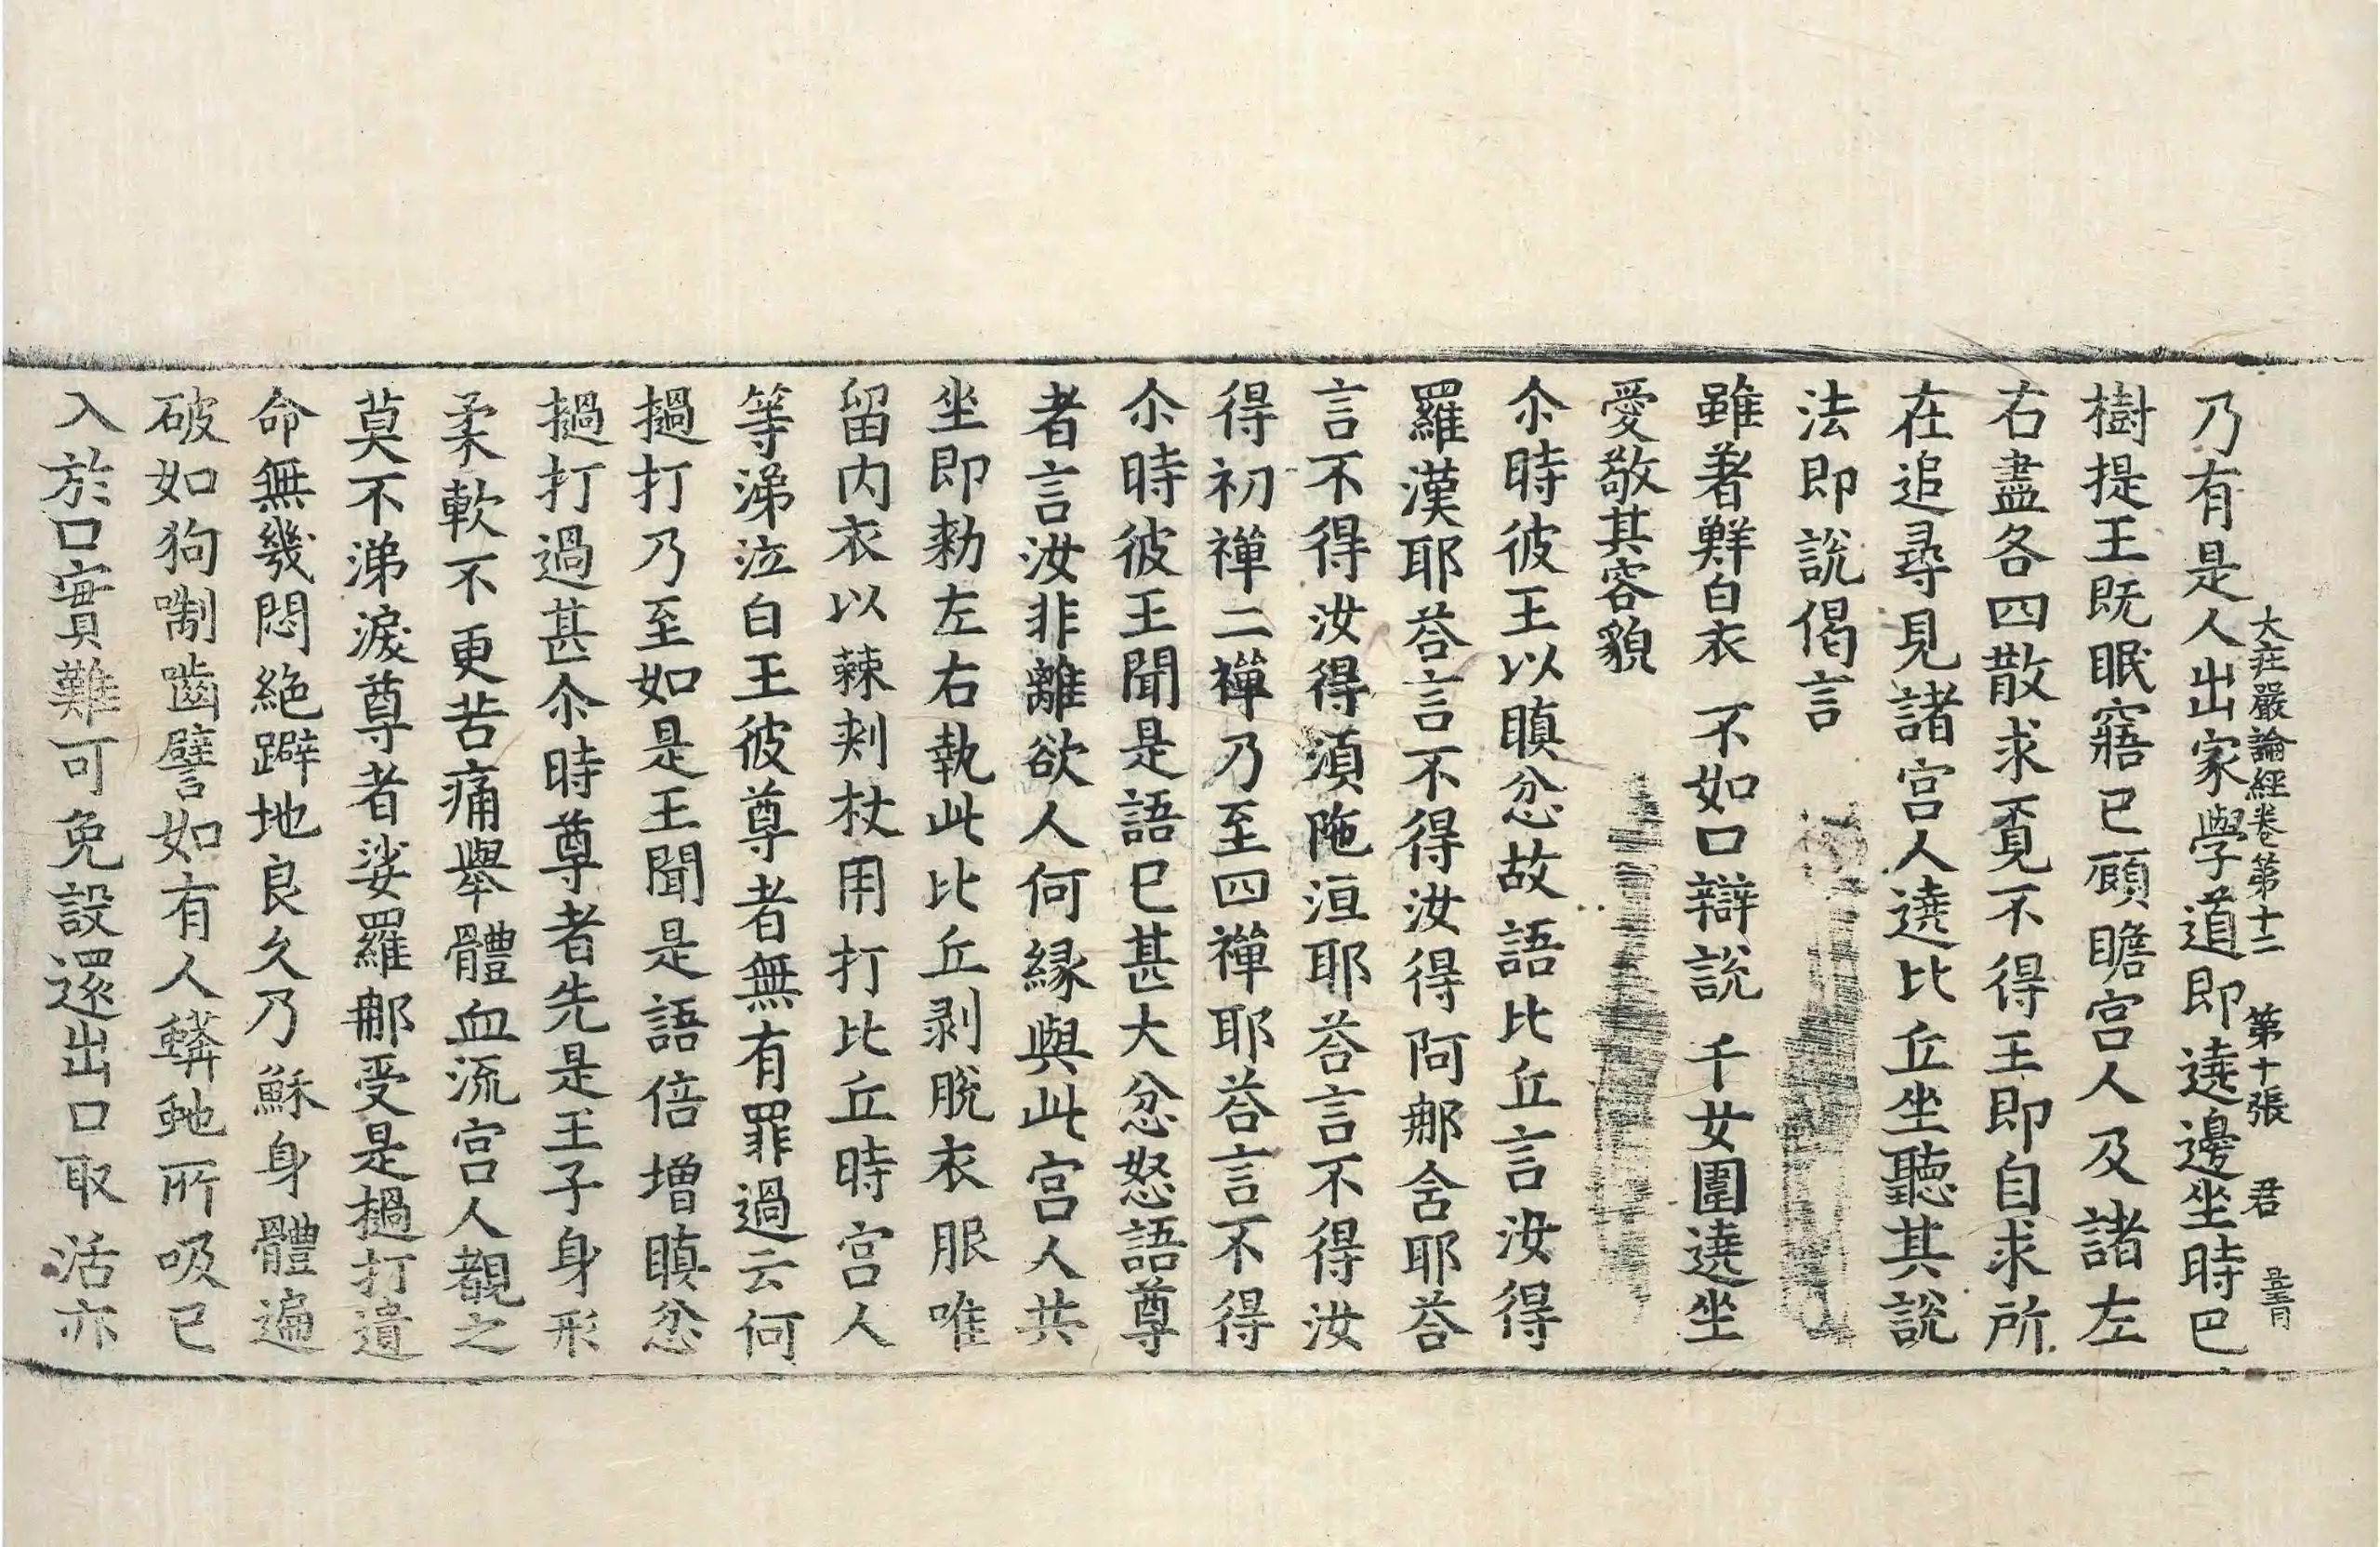 大莊嚴論經卷第十二　第十張　君
乃有是人出家學道即遶邊坐時巴
樹提王既眠寤已顧瞻宮人及諸左
右盡各四散求覔不得王即自求所
在追尋見諸宮人遶比丘坐聽其說
法即說偈言
雖著鮮白衣　不如口辯說　千女圍遶坐
愛敬其容貌
尒時彼王以瞋忿故語比丘言汝得
羅漢耶荅言不得汝得阿那含耶荅
言不得汝得湏陁洹耶荅言不得汝
得初禪二禪乃至四禪耶荅言不得
尒時彼王聞是語已甚大忿怒語尊
者言汝非離欲人何縁與此宮人共
坐即勑左右執此比丘剥脫衣服唯
留內衣以蕀刾杖用打比丘時宮人
等涕泣白王彼尊者無有罪過云何
撾打乃至如是王聞是語倍增瞋忿
撾打過甚尒時尊者先是王子身形
柔軟不更苦痛舉體血流宮人覩之
莫不涕淚尊者娑羅那受是撾打遺
命無幾悶絕躃地良久乃穌身體遍
破如狗㘅齧譬如有人蟒虵所吸已
入於口實難可免設還出口取活亦